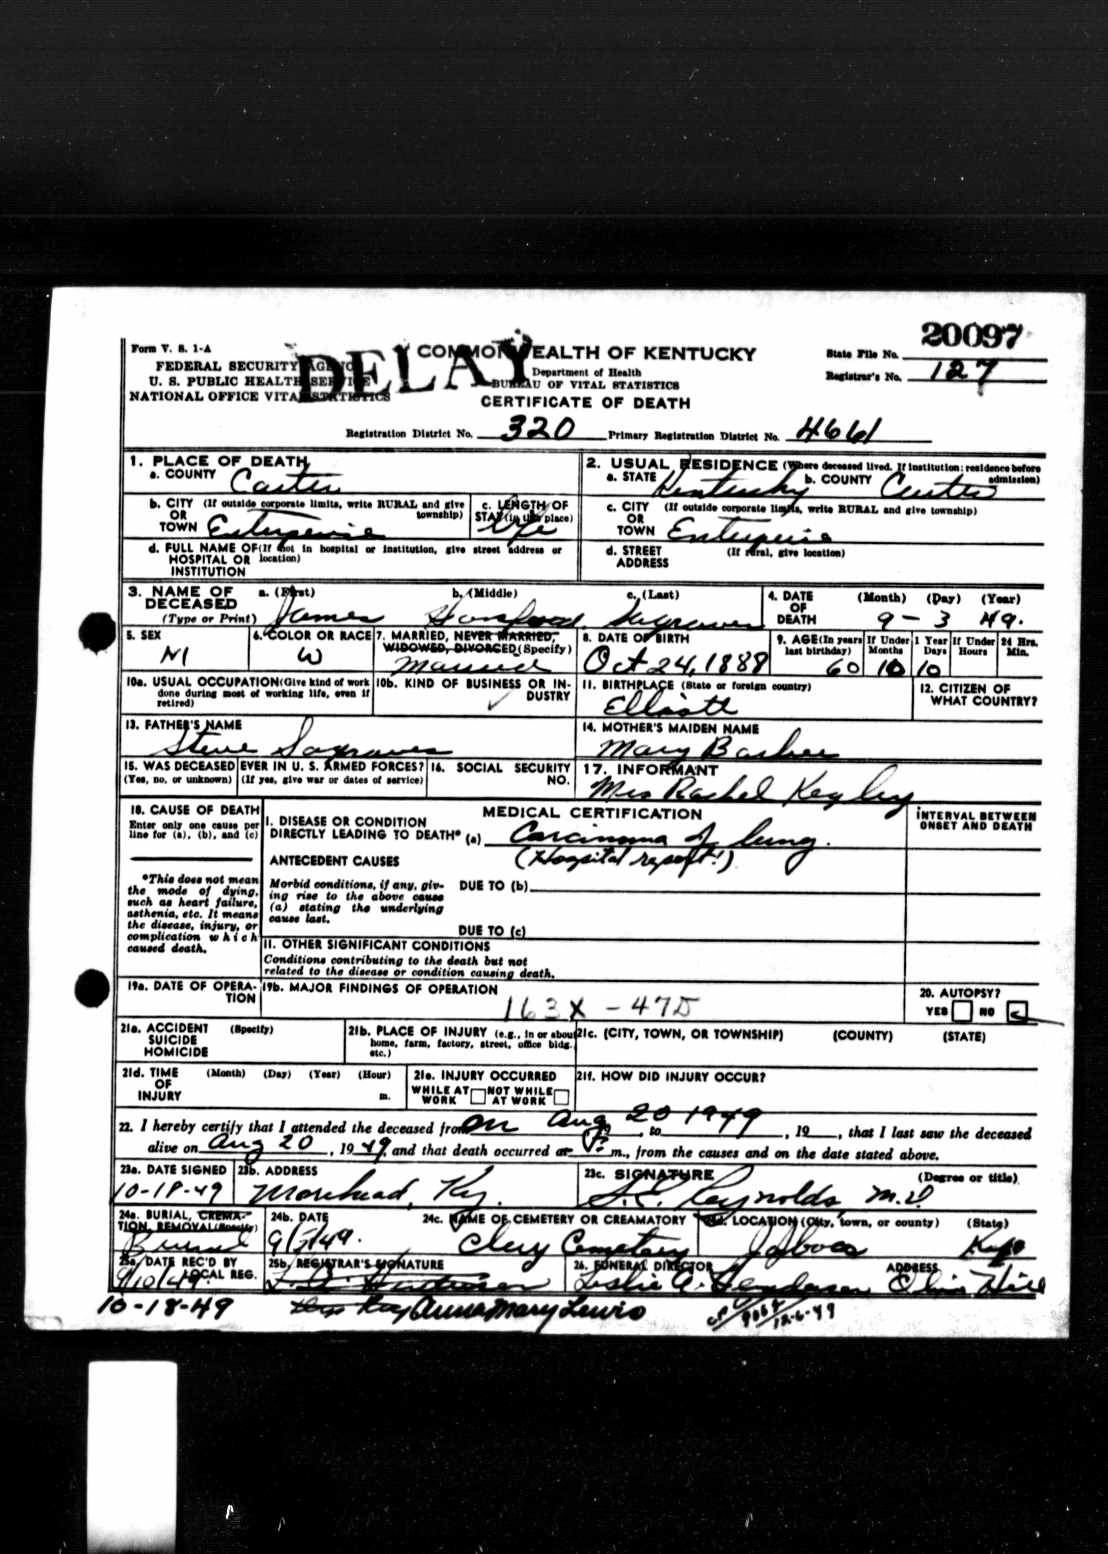 20097
Form V. S. 1-A
FEDERAL SECURITY AGENCY
U. S. PUBLIC HEALTH SERVICE
NATIONAL OFFICE VITAL STATISTICS
DELAY
COMMONWEALTH OF KENTUCKY
Department of Health
BUREAU OF VITAL STATISTICS
CERTIFICATE OF DEATH
State File No.
Registrar's No. 127
Registration District No. 320 Primary Registration District No. 4661
1. PLACE OF DEATH
a. COUNTY Carter
2. USUAL RESIDENCE (Where deceased lived. If institution: residence before admission)
a. STATE Kentucky b. COUNTY Carter
b. CITY (If outside corporate limits, write RURAL and give township)
OR
TOWN Enterprise
c. LENGTH OF STAY (in this place)
Life
c. CITY (If outside corporate limits, write RURAL and give township)
OR
TOWN Enterprise
d. FULL NAME OF (If not in hospital or institution, give street address or location)
HOSPITAL OR
INSTITUTION
d. STREET (If rural, give location)
ADDRESS
3. NAME OF DECEASED
(Type or Print)
a. (First) b. (Middle) c. (Last)
James
4. DATE OF DEATH
(Month) (Day) (Year)
9 - 3 49.
5. SEX
M
6. COLOR OR RACE
W
7. MARRIED, NEVER MARRIED, WIDOWED, DIVORCED (Specify)
Married
8. DATE OF BIRTH
Oct 24, 1888
9. AGE (In years last birthday) If Under 1 Year Months Days If Under 24 Hrs. Hours Min.
60 10 10
10a. USUAL OCCUPATION (Give kind of work done during most of working life, even if retired)
10b. KIND OF BUSINESS OR INDUSTRY
11. BIRTHPLACE (State or foreign country)
Elliott
12. CITIZEN OF WHAT COUNTRY?
13. FATHER'S NAME
Steve Sagraves
14. MOTHER'S MAIDEN NAME
Mary Barker
15. WAS DECEASED EVER IN U. S. ARMED FORCES?
(Yes, no, or unknown) (If yes, give war or dates of service)
16. SOCIAL SECURITY NO.
17. INFORMANT
Mrs Rachel Kegley
18. CAUSE OF DEATH
Enter only one cause per line for (a), (b), and (c)
MEDICAL CERTIFICATION
INTERVAL BETWEEN ONSET AND DEATH
I. DISEASE OR CONDITION
DIRECTLY LEADING TO DEATH* (a) Carcinoma of lung.
(Hospital report!)
ANTECEDENT CAUSES
*This does not mean the mode of dying, such as heart failure, asthenia, etc. It means the disease, injury, or complication which caused death.
Morbid conditions, if any, giving rise to the above cause (a) stating the underlying cause last.
DUE TO (b)
DUE TO (c)
II. OTHER SIGNIFICANT CONDITIONS
Conditions contributing to the death but not related to the disease or condition causing death.
19a. DATE OF OPERATION
19b. MAJOR FINDINGS OF OPERATION
163X - 47D
20. AUTOPSY?
YES NO
21a. ACCIDENT (Specify)
SUICIDE
HOMICIDE
21b. PLACE OF INJURY (e.g., in or about home, farm, factory, street, office bldg. etc.)
21c. (CITY, TOWN, OR TOWNSHIP) (COUNTY) (STATE)
21d. TIME OF INJURY
(Month) (Day) (Year) (Hour)
m.
21e. INJURY OCCURRED
WHILE AT WORK NOT WHILE AT WORK
21f. HOW DID INJURY OCCUR?
22. I hereby certify that I attended the deceased from on Aug 20 1949, to , 19 , that I last saw the deceased
alive on Aug 20, 1949, and that death occurred at P. m., from the causes and on the date stated above.
23a. DATE SIGNED
10-18-49
23b. ADDRESS
Morehead, Ky.
23c. SIGNATURE (Degree or title)
Reynolds, M.D
24a. BURIAL, CREMATION, REMOVAL (Specify)
Burial
24b. DATE
9/5/49.
24c. NAME OF CEMETERY OR CREAMATORY
Cemetery
24d. LOCATION (City, town, or county) (State)
25a. DATE REC'D BY LOCAL REG.
9/10/49.
25b. REGISTRAR'S SIGNATURE
26. FUNERAL DIRECTOR ADDRESS
Leslie A. Henderson Olive Hill
10-18-49 Anna Mary Lewis
12-6-49